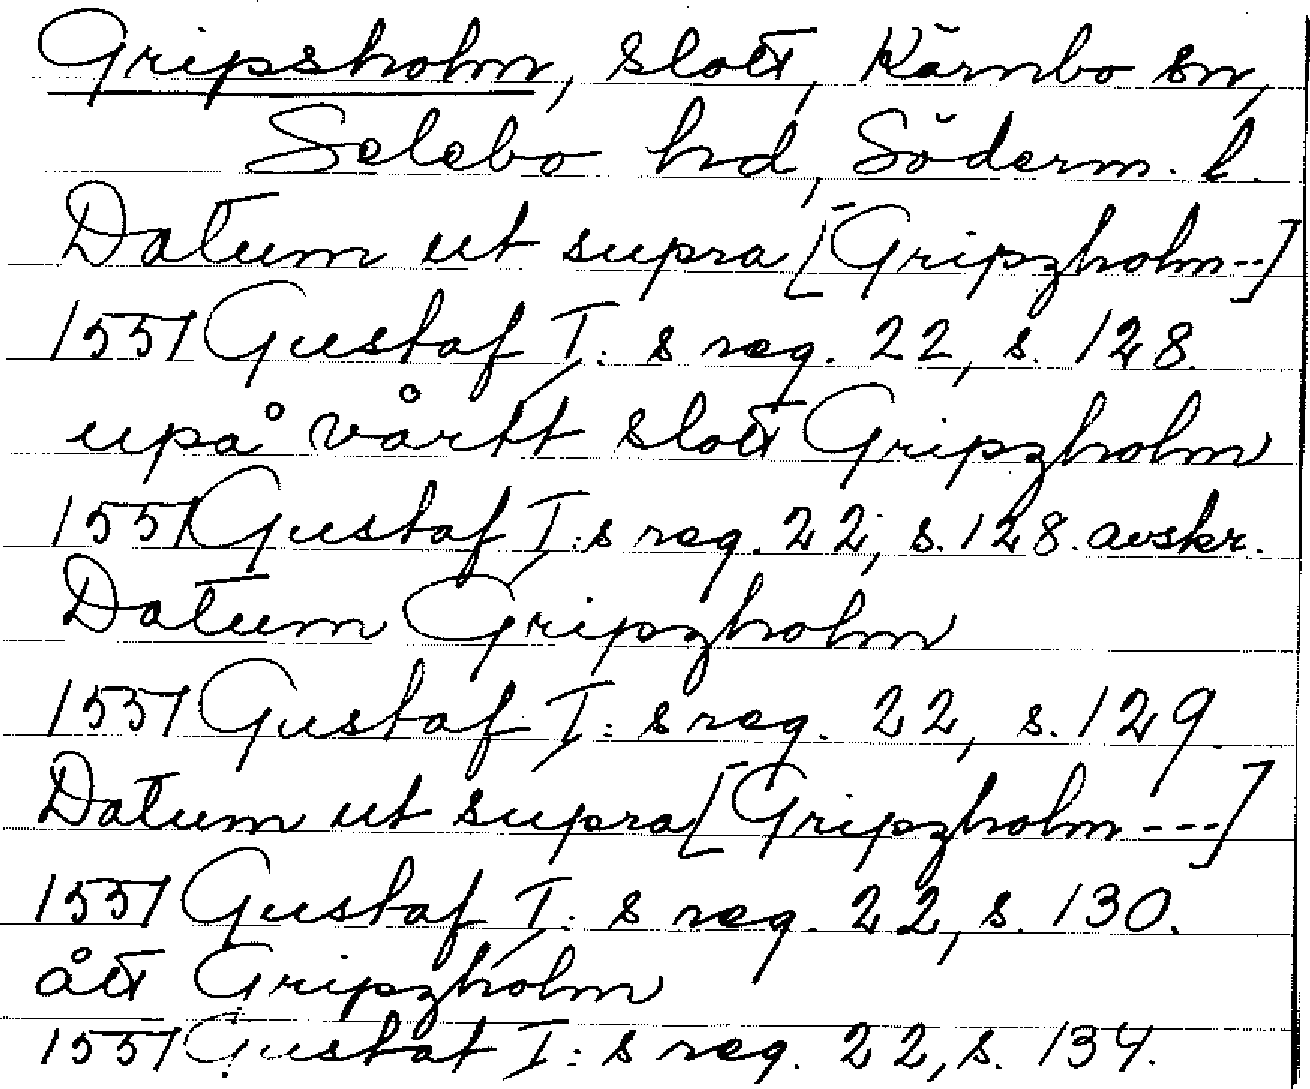 Gripsholm, slott, Kärnbo sn,
Selebo hd, Söderm. l.
Datum ut supra [Gripzholm--]
1551 Gustaf I:s reg. 22, s. 128.
upå vårtt slott Gripzholm
1551 Gustaf I:s reg. 22, s. 128. avskr.
Datum Gripzholm
1551 Gustaf I:s reg. 22, s. 129.
Datum ut supra [Gripzholm---]
1551 Gustaf I:s reg. 22, s. 130.
ått Gripzholm
1551 Gustaf I:s reg. 22, s. 134.